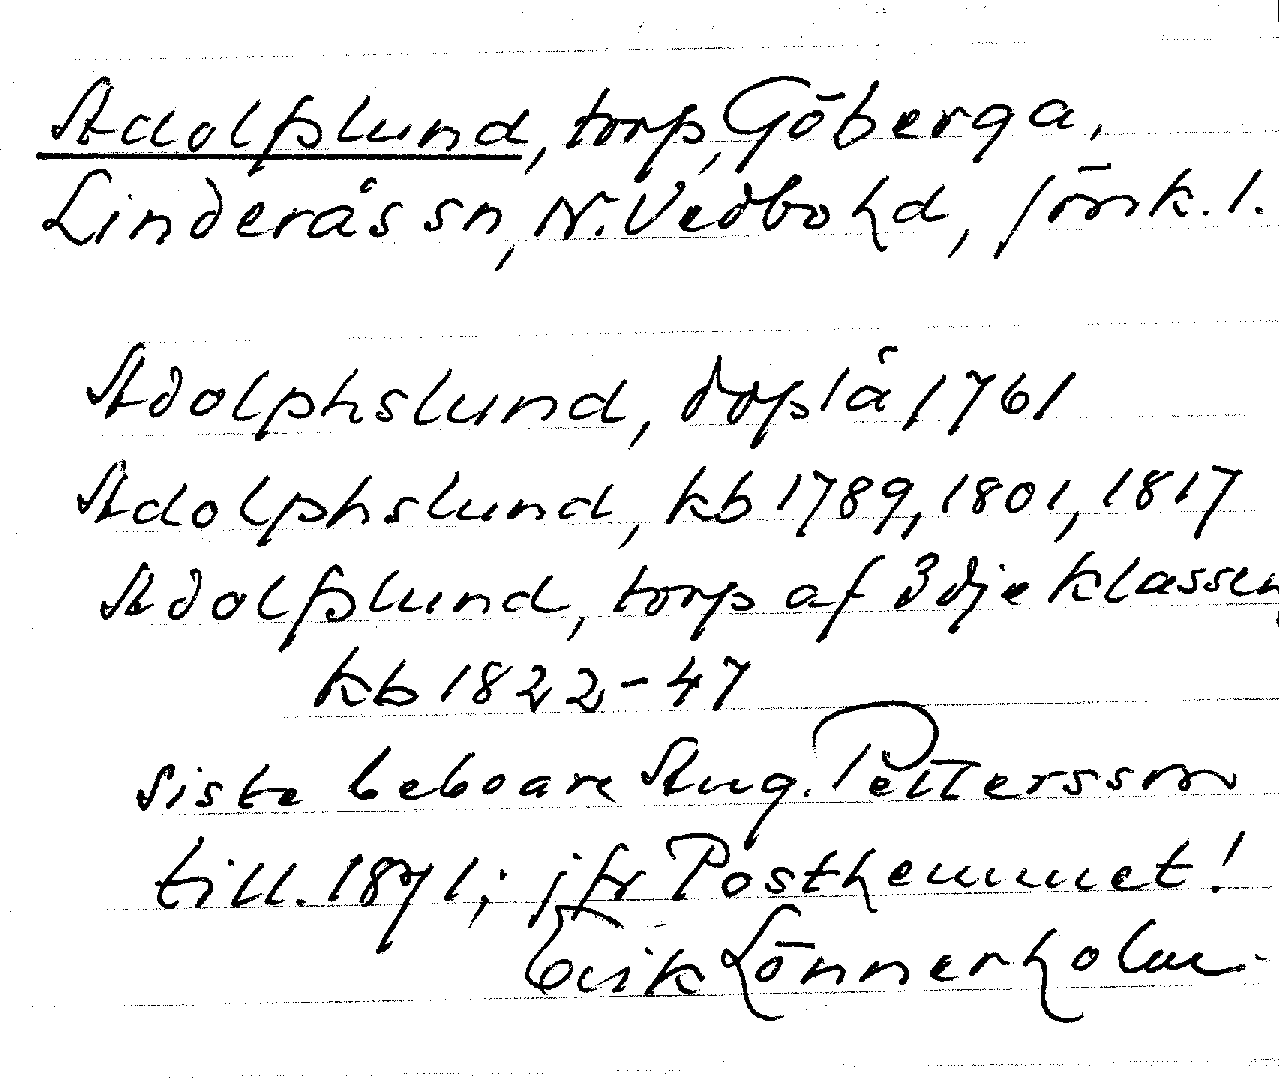 Adolfslund, torp, Göberga,
Linderås sn, N. Vedbohd, Jönk. l.
Adolphslund, dopl å 1761
Adolphslund, kb 1789, 1801, 1817
Adolfslund, torp af 3dje klassen,
kb 1822-47
siste beboare Aug. Pettersson
till. 1871; jfr Posthemmet!
Erik Lönnerholm